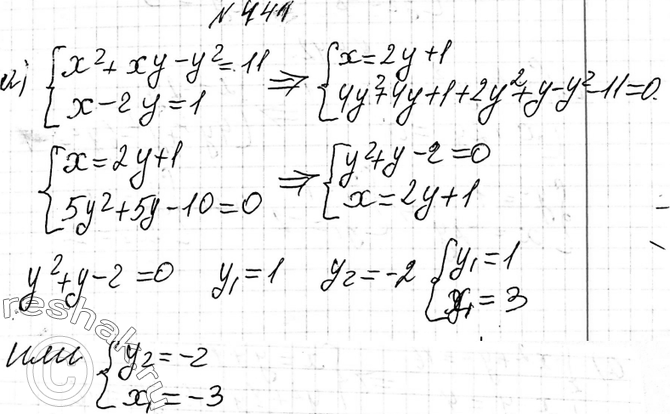 № 441
а) { x² + xy - y² = 11 ⇒ { x = 2y + 1
{ x - 2y = 1 { 4y² + 4y + 1 + 2y² + y - y² - 11 = 0
{ x = 2y + 1 ⇒ { y² + y - 2 = 0
{ 5y² + 5y - 10 = 0 { x = 2y + 1
y² + y - 2 = 0 y₁ = 1 y₂ = -2 { y₁ = 1
{ x₁ = 3
или { y₂ = -2
{ x₁ = -3
© reshak.ru